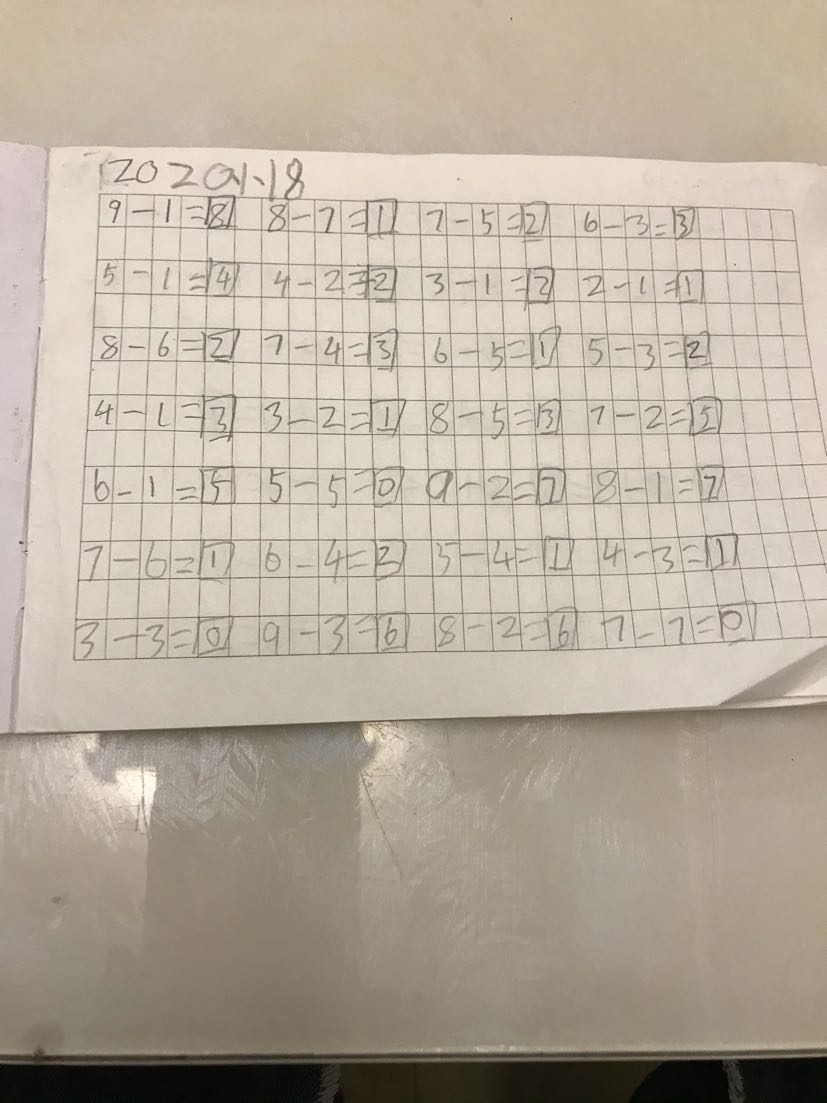 2020.1.18
9-1=8 8-7=1 7-5=2 6-3=3
5-1=4 4-2=2 3-1=2 2-1=1
8-6=2 7-4=3 6-5=1 5-3=2
4-1=3 3-2=1 8-5=3 7-2=5
6-1=5 5-5=0 9-2=7 8-1=7
7-6=1 6-4=2 5-4=1 4-3=1
3-3=0 9-3=6 8-2=6 7-7=0